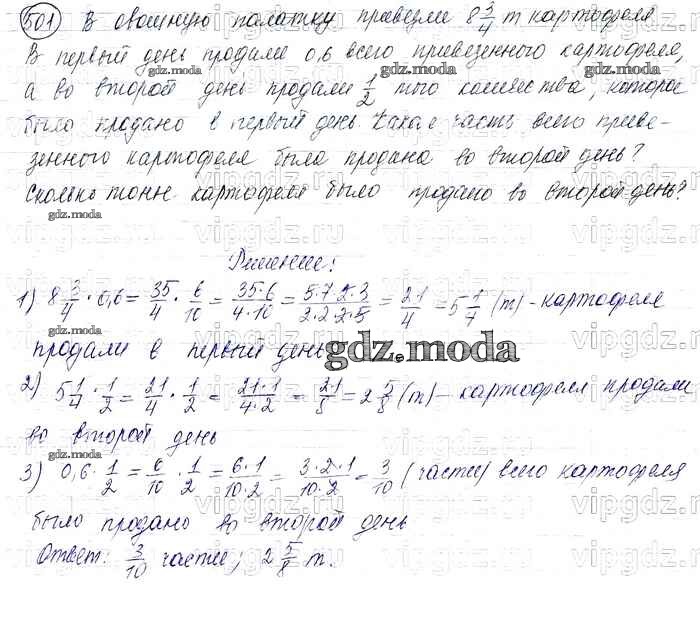 501 В овощную палатку привезли 8 3/4 т картофеля.
В первый день продали 0,6 всего привезенного картофеля,
а во второй день продали 1/2 того количества, которое
было продано в первый день. Какая часть всего приве-
зенного картофеля была продана во второй день?
Сколько тонн картофеля было продано во второй день?
Решение:
1) 8 3/4 · 0,6 = 35/4 · 6/10 = 35·6/4·10 = 5·7·2·3/2·2·2·5 = 21/4 = 5 1/4 (т) - картофеля
продали в первый день
2) 5 1/4 · 1/2 = 21/4 · 1/2 = 21·1/4·2 = 21/8 = 2 5/8 (т) - картофеля продали
во второй день
3) 0,6 · 1/2 = 6/10 · 1/2 = 6·1/10·2 = 3·2·1/10·2 = 3/10 (части) всего картофеля
было продано во второй день
Ответ: 3/10 части; 2 5/8 т.
gdz.moda
vipgdz.ru